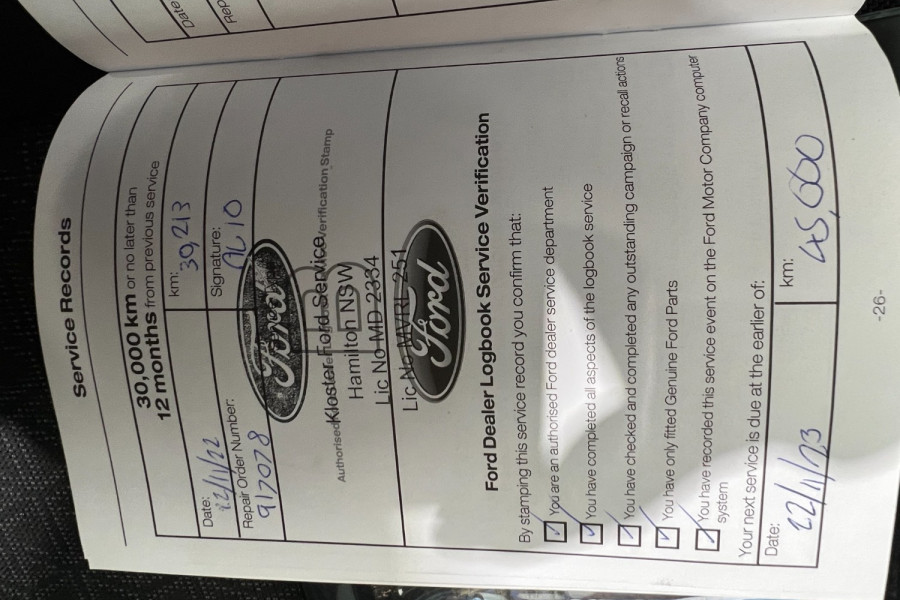 Date
Rep
Service Records
30,000 km or no later than
12 months from previous service
Date: 22/11/22
km: 30,213
Repair Order Number: 917078
Signature:
Ford
Kloster Ford Service
Hamilton NSW
Lic No MD 2334
Lic No MVRL 251
Authorised Verification Stamp
Ford
Ford Dealer Logbook Service Verification
By stamping this service record you confirm that:
You are an authorised Ford dealer service department
You have completed all aspects of the logbook service
You have checked and completed any outstanding campaign or recall actions
You have only fitted Genuine Ford Parts
You have recorded this service event on the Ford Motor Company computer
system
Your next service is due at the earlier of:
Date: 22/11/23
km: 45,000
-26-